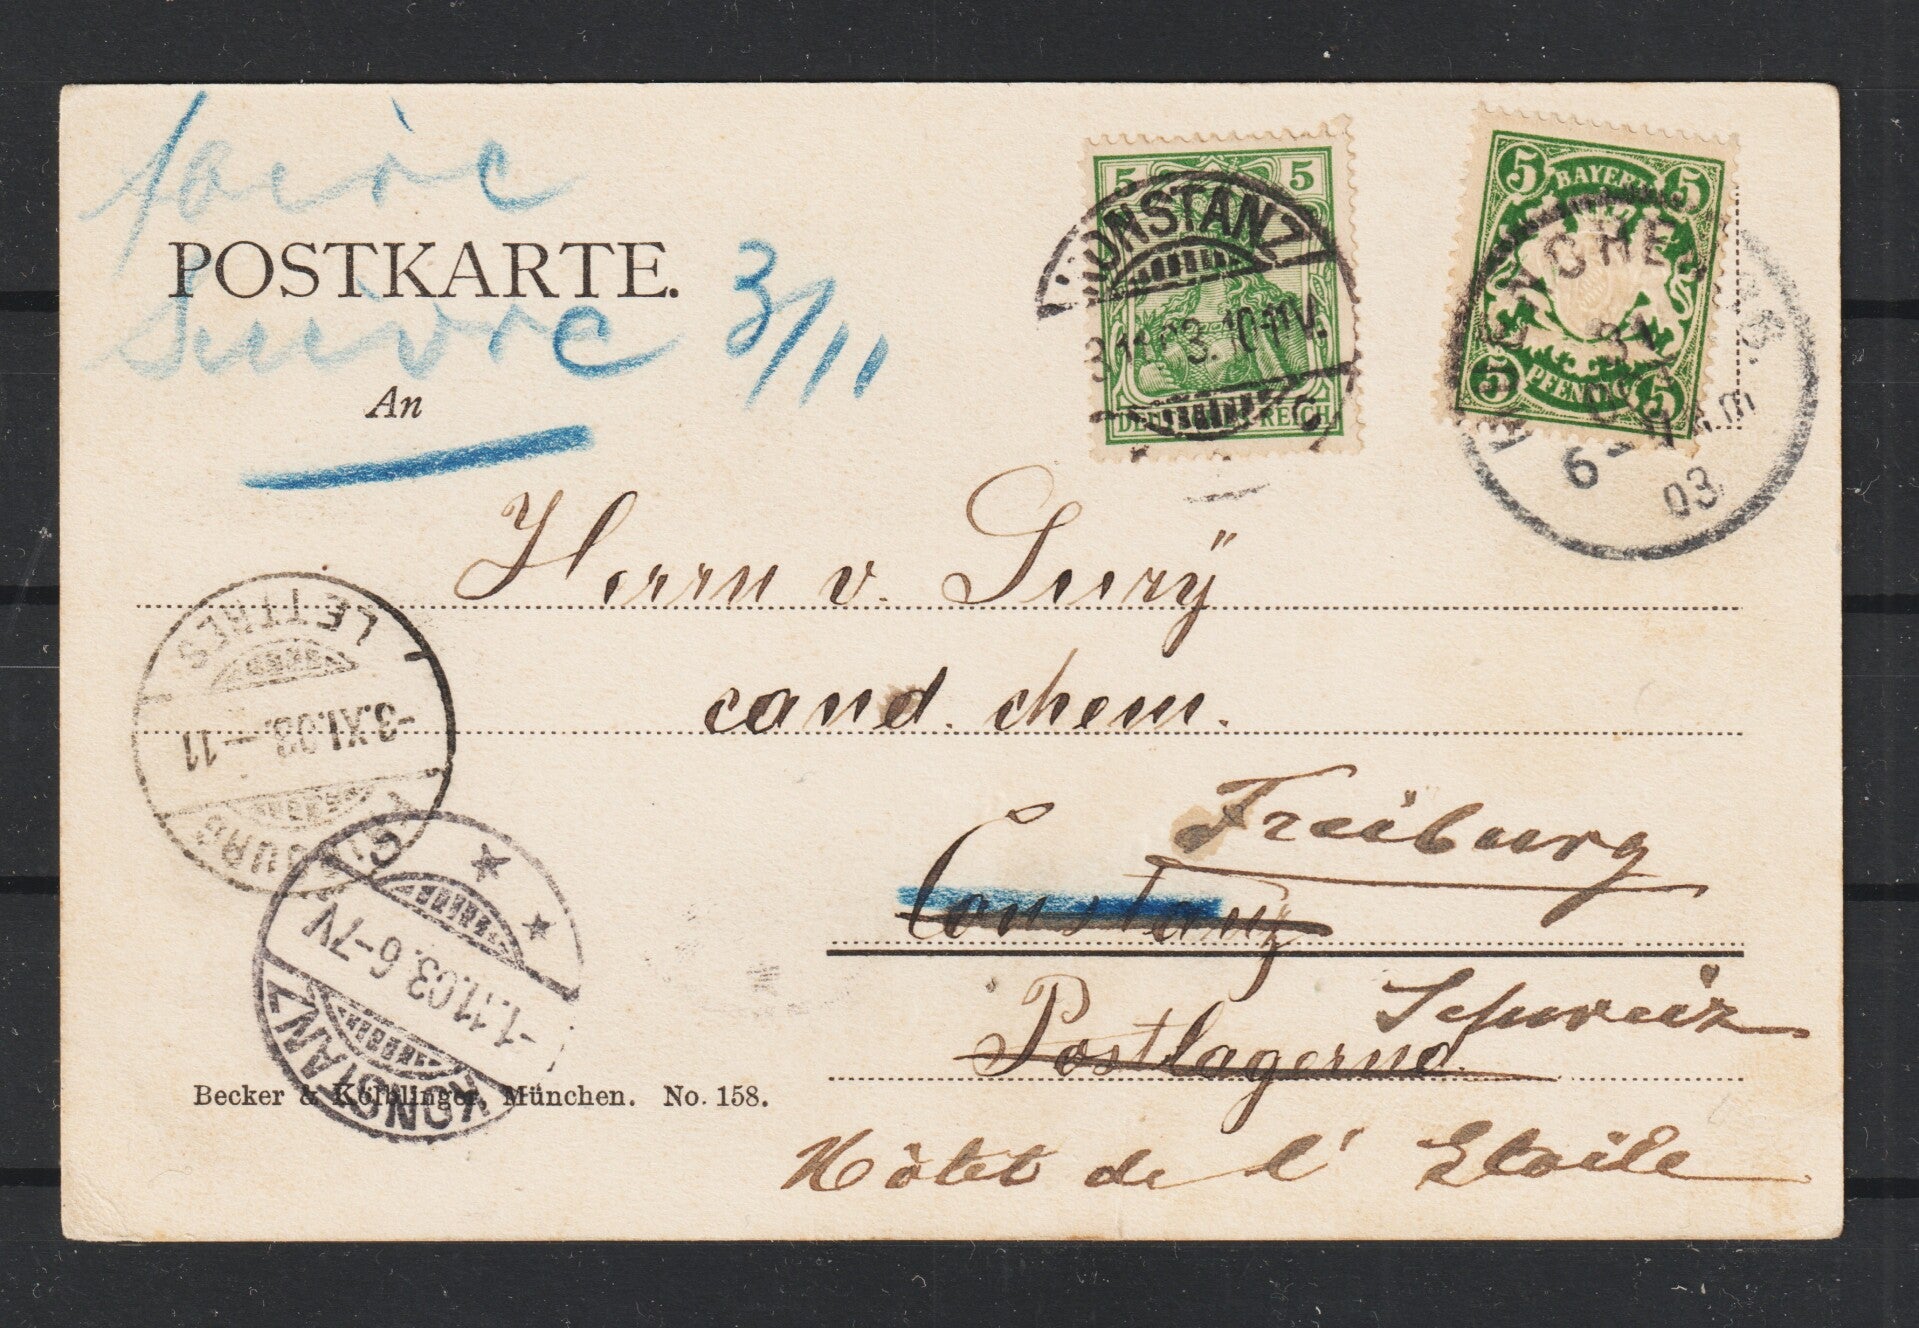 faire
POSTKARTE.
suivre 3/11
An
5 5
KONSTANZ
DEUTSCHES REICH
5 5
BAYERN
PFENNIG
5 5
03
Herrn v. Sury
cand. chem.
Freiburg
Constanz
Schweiz
Postlagernd.
Hôtel de l'Etoile
LETTRES
-3.XI.03.-11
-1.11.03. 6-7V
KONSTANZ
Becker & Kölblinger, München. No. 158.